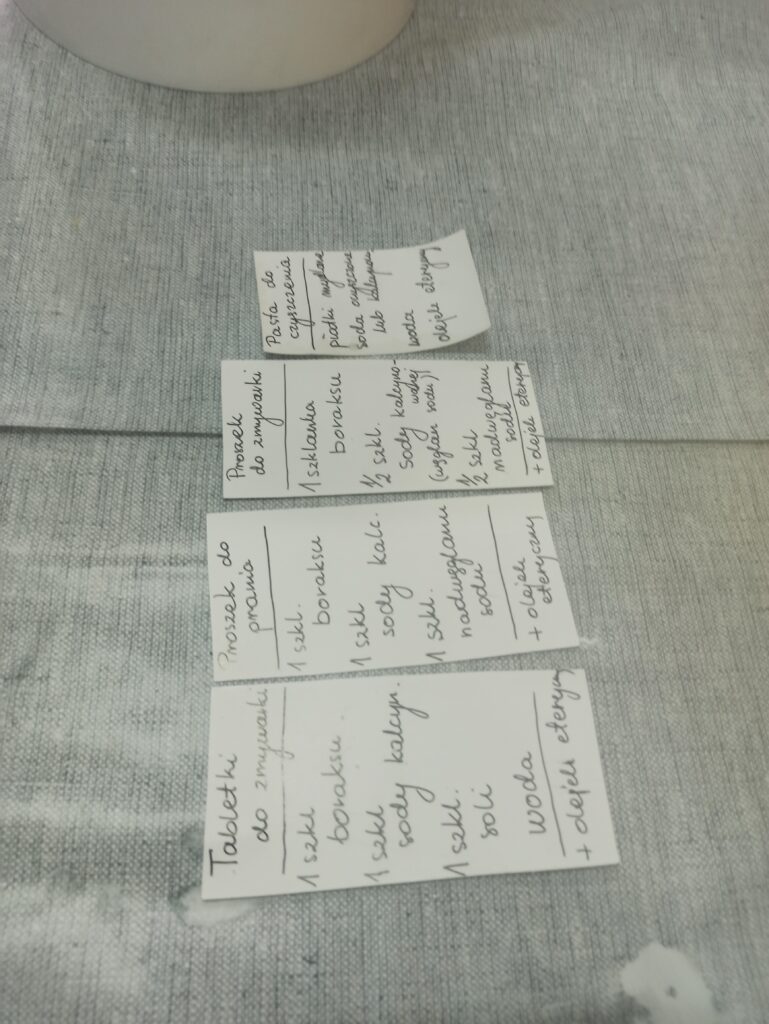 Tabletki
do zmywarki
1 szkl
boraksu.
1 szkl
sody kalcyn.
1 szkl.
soli
woda
+ olejek eteryczny
Proszek do
prania
1 szkl.
boraksu
1 szkl
sody kalc.
1 szkl.
nadwęglanu
sodu
+ olejek
eteryczny
Proszek
do zmywarki
1 szklanka
boraksu
1/2 szkl.
sody kalcyno-
wanej
(węglan sodu)
1/2 szkl
nadwęglanu
sodu
+ olejek eteryczny
Pasta do
czyszczenia
płatki mydlane
soda oczyszczona
lub
woda
olejek eteryczny